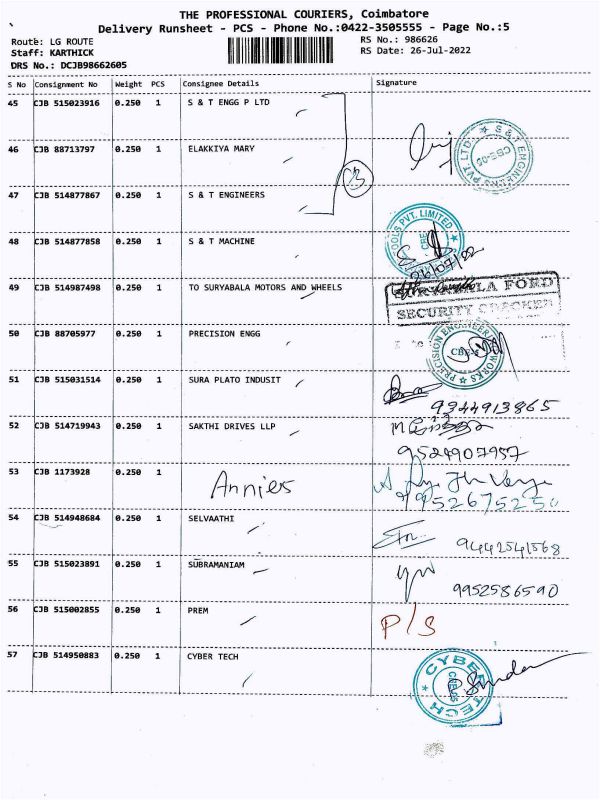 THE PROFESSIONAL COURIERS, Coimbatore
Delivery Runsheet - PCS - Phone No.:0422-3505555 - Page No.:5
Route: LG ROUTE RS No.: 986626
Staff: KARTHICK RS Date: 26-Jul-2022
DRS No.: DCJB98662605
S No Consignment No Weight PCS Consignee Details Signature
45 CJB 515023916 0.250 1 S & T ENGG P LTD
46 CJB 88713797 0.250 1 ELAKKIYA MARY
S & T ENGINEERS PVT. LTD. CBE-05
47 CJB 514877867 0.250 1 S & T ENGINEERS
48 CJB 514877858 0.250 1 S & T MACHINE
TOOLS PVT. LIMITED CBE
49 CJB 514987498 0.250 1 TO SURYABALA MOTORS AND WHEELS
SURYABALA FORD
SECURITY CHECKED
50 CJB 88705977 0.250 1 PRECISION ENGG
PRECISION ENGINEER WORKS
51 CJB 515031514 0.250 1 SURA PLATO INDUSIT
9344913865
52 CJB 514719943 0.250 1 SAKTHI DRIVES LLP
9524907957
53 CJB 1173928 0.250 1 Annies
9952675250
54 CJB 514948684 0.250 1 SELVAATHI
9442541568
55 CJB 515023891 0.250 1 SUBRAMANIAM
9952586590
56 CJB 515002855 0.250 1 PREM P/S
57 CJB 514950883 0.250 1 CYBER TECH
CYBER TECH